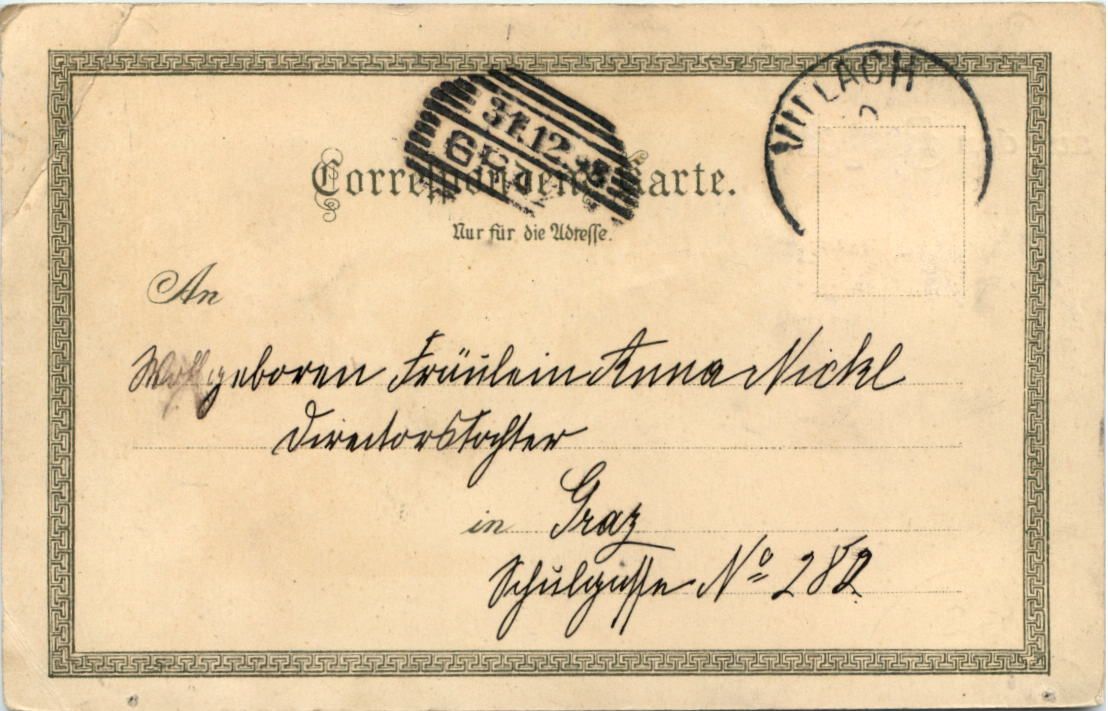 VILLACH
31.12.98
Correspondenz-Karte.
Nur für die Adresse.
An
Wohlgeboren Fräulein Anna Nickl
Directorstochter
in Graz
Schulgasse No 282